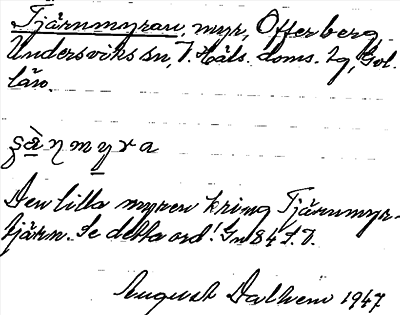 Tjärnmyran, myr, Offerberg,
Undersviks sn, V. Häls. doms. lg, Gvl.
län.
ʂä̀ɳmyra
Den lilla myren kring Tjärnmyr-
tjärn. Se detta ord! Gn 84 S.V.
August Dalhem 1947